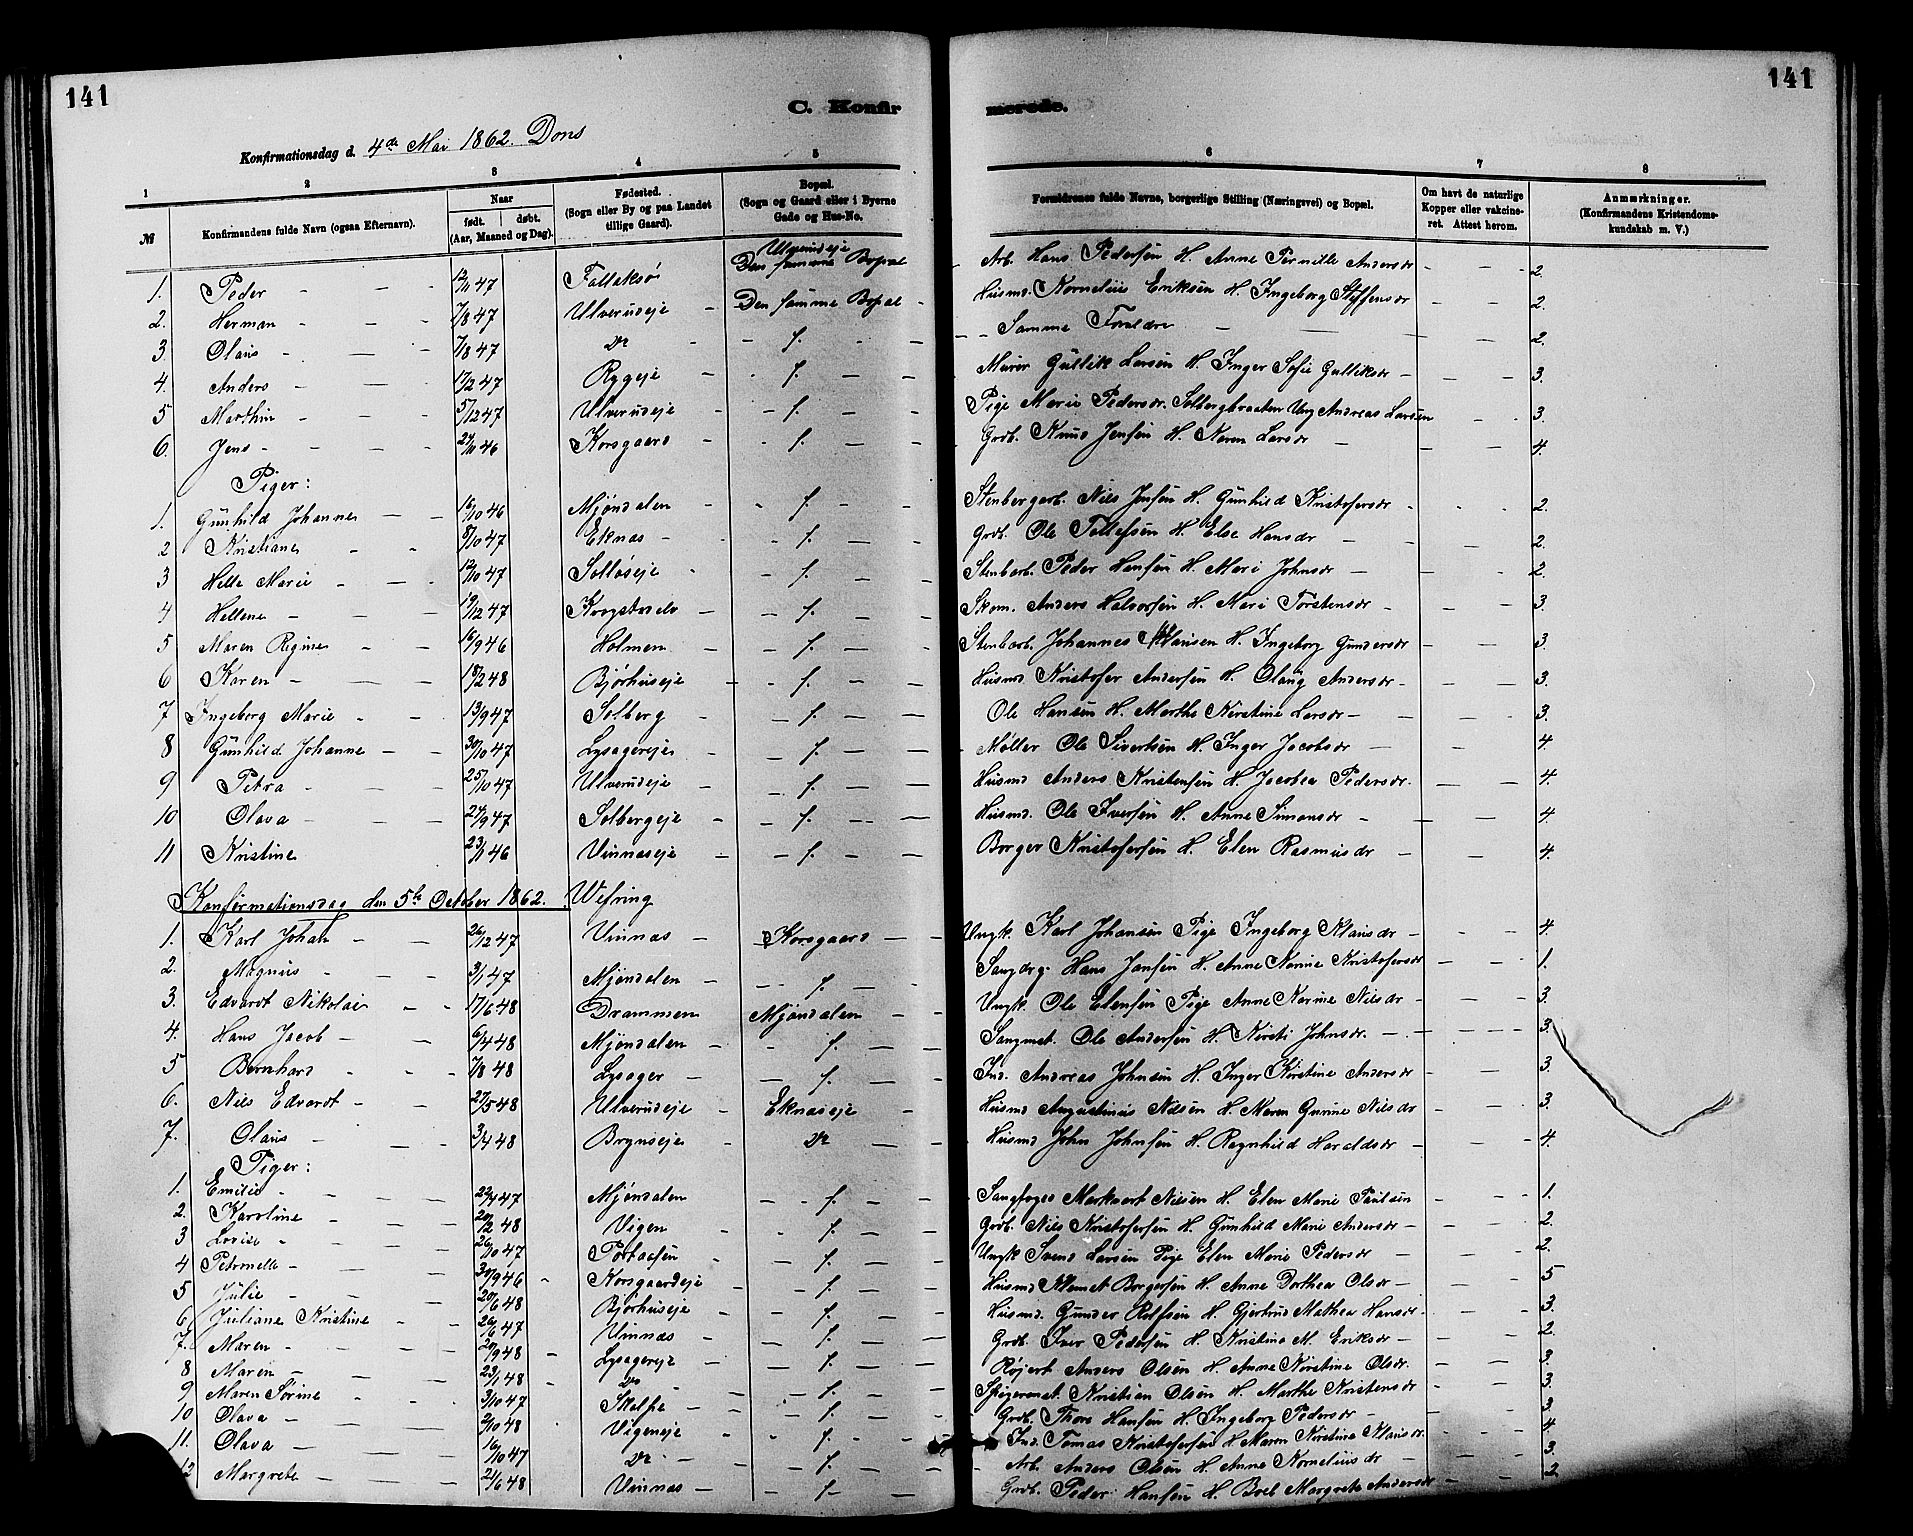 141
C. Konfir
merede.
141
Konfirmationsdag d. 4de Mai 1862. Dons
1 2 3 4 5 6 7 8
№
Konfirmandens fulde Navn (ogsaa Efternavn).
Naar
født. døbt.
(Aar, Maaned og Dag).
Fødested.
(Sogn eller By og paa Landet
tillige Gaard).
Bopæl.
(Sogn og Gaard eller i Byerne
Gade og Hus-No.
Forældrenes fulde Navne, borgerlige Stilling (Næringsvei) og Bopæl.
Om havt de naturlige
Kopper eller vakcine-
ret. Attest herom.
Anmærkninger.
(Konfirmandens Kristendoms-
kundskab m. V.)
Ulverudeje
1. Peder 12/11 47 Den samme Bopæl Arb. Hans Pedersen H. Anne Pernille Andersdr 2.
2. Herman 7/8 47 Ulverudeje Den samme Bopæl Husmd. Kornelius Eriksen H. Ingeborg Steffensdr 2.
3. Olaus 7/8 47 do Samme Forældre 2.
4. Anders 17/2 47 Rygeje Murer Gullik Larsen H. Inger Sofie Gulliksdr 3.
5 Marthin 5/12 47 Ulverudeje Pige Marie Pedersdr. Solbergbraaten Ung Andreas Larsen 3.
6. Jens 27/10 46 Korsgaard Grdb. Knud Jensen H. Karen Larsdr 4.
Piger:
1. Gunhild Johanne 16/10 46 Mjøndalen Stenbergarb. Nils Jensen H. Gunhild Kristofersdr 2.
2 Kristiane 8/10 47 Eknas Grdb. Ole Tollefsen H. Else Hansdr 2.
3 Helle Marie 12/10 47 Solløseje Stenbarb. Peder Hansen H. Mari Johnsdr 2.
4 Hellene 19/12 47 Skom. Anders Halvorsen H. Mari Torstensdr 3.
5 Maren Regine 16/9 46 Holmen Stenbarb. Johannes Hansen H. Ingeborg Gundersdr 3.
6 Karen 18/2 48 Bjørhuseje Husmd Kristofer Andersen H. Olaug Andersdr 3.
7 Ingeborg Marie 13/9 47 Solberg Ole Hansen H. Marthe Kirstine Larsdr 3.
8 Gunhild Johanne 30/10 47 Lysagereje Møller Ole Sivertsen H. Inger Jacobsdr 4.
9 Petra 25/10 47 Ulverudeje Husmd Anders Kristensen H. Jacobea Pedersdr. 4.
10 Olava 27/9 47 Solbergeje Husmd. Ole Iversen H. Anne Simonsdr 4
11 Kristine 23/1 46 Vinnaseje Borger Kristofersen H. Elen Rasmusdr 4.
Konfirmationsdag den 5te October 1862. Wefring
1. Karl Johan 26/12 47 Vinnas Korsgaard Ungk. Karl Johansen Pige Ingeborg Klausdr 4.
2. Magnus 3/1 47 Mjøndalen Hans Jansen H. Anne Nonne Kristofersdr 1.
3. Edvardt Nikolai 17/6 48 Drammen Mjøndalen Ungk. Ole Elensen Pige Anne Karine Nilsdr 3.
4. Hans Jacob 6/4 48 Mjøndalen Sangmst. Ole Andersen H. Kirsti Johnsdr. 3.
5 Bernhard 7/8 48 Lysager Ind. Andreas Johnsen H. Inger Kirstine Andersdr 3.
6. Nils Edvardt 27/5 48 Ulverudeje Eknaseje Husmd Augustinus Nilsen H. Maren Gurine Nilsdr 3.
7. Olaus 3/4 48 Brynseje do Husmd John Johnsen H. Ragnhild Haraldsdr 4.
Piger:
1. Emilie 22/4 47 Mjøndalen Markvart Nilsen H. Elen Marie Paulsen 1.
2. Karoline 20/2 48 Vigen Grdb. Nils Kristofersen H. Gunhild Marie Andersdr 2.
3 Lovise 26/10 47 Ungk Svend Larsen Pige Elen Marie Pedersdr 2.
4 Petronelle 30/9 46 Korsgaardeje Husmd Klemet Borgersen H. Anne Dorthea Olsdr 5
5 Julie 20/6 48 Bjørhuseje Husmd. Gunder Rolfsen H. Gjertrud Mathea Hansdr 3.
6 Juliane Kristine 26/6 47 Vinnas Grdb. Iver Pedersen H. Kristine M. Eriksdr 2.
7. Maren 29/9 48 Lysagereje Røjert Anders Olsen H. Anne Kirstine Olsdr. 3.
8 Maren 23/1 48 do Kristian Olsen H. Marthe Kristensdr 3.
9 Maren Sørine 3/10 47 Grdb. Thore Hansen H. Ingeborg Pedersdr 3.
10 Olava 2/10 48 Vigeneje Ind. Tomas Kristofersen H. Maren Kirstine Klausdr. 4.
11. Olava 16/10 47 do Arb. Anders Olsen H. Anne Korneliusdr 3.
12 Margrete 21/6 48 Vinnas Grdb. Peder Hansen H. Boel Margrete Andersdr 2.